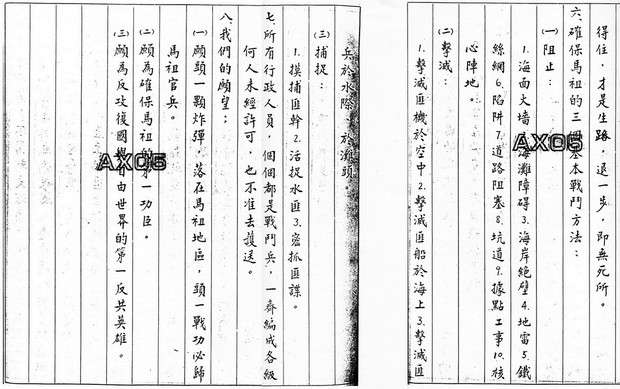 得住，才是生路，退一步，即無死所。
六、確保馬祖的三個基本戰鬥方法：
(一)阻止：
1.海面火墻2.海灘障碍3.海岸絕壁4.地雷5.鐵
絲網6.陷阱7.道路阻塞8.坑道9.據點工事10.核
心陣地。
(二)擊滅：
1.擊滅匪機於空中2.擊滅匪船於海上3.擊滅匪
AX05
兵於水際、於灘頭。
(三)捕捉：
1.摸捕匪幹2.活捉水匪3.密抓匪諜。
七、所有行政人員，個個都是戰鬥兵，一齊編成各級
何人未經許可，也不准去護送。
八、我們的願望；
(一)願頭一顆炸彈，落在馬祖地區，頭一戰功必歸
馬祖官兵。
(二)願為確保馬祖的第一功臣。
(三)願為反攻復國與自由世界的第一反共英雄。
AX05